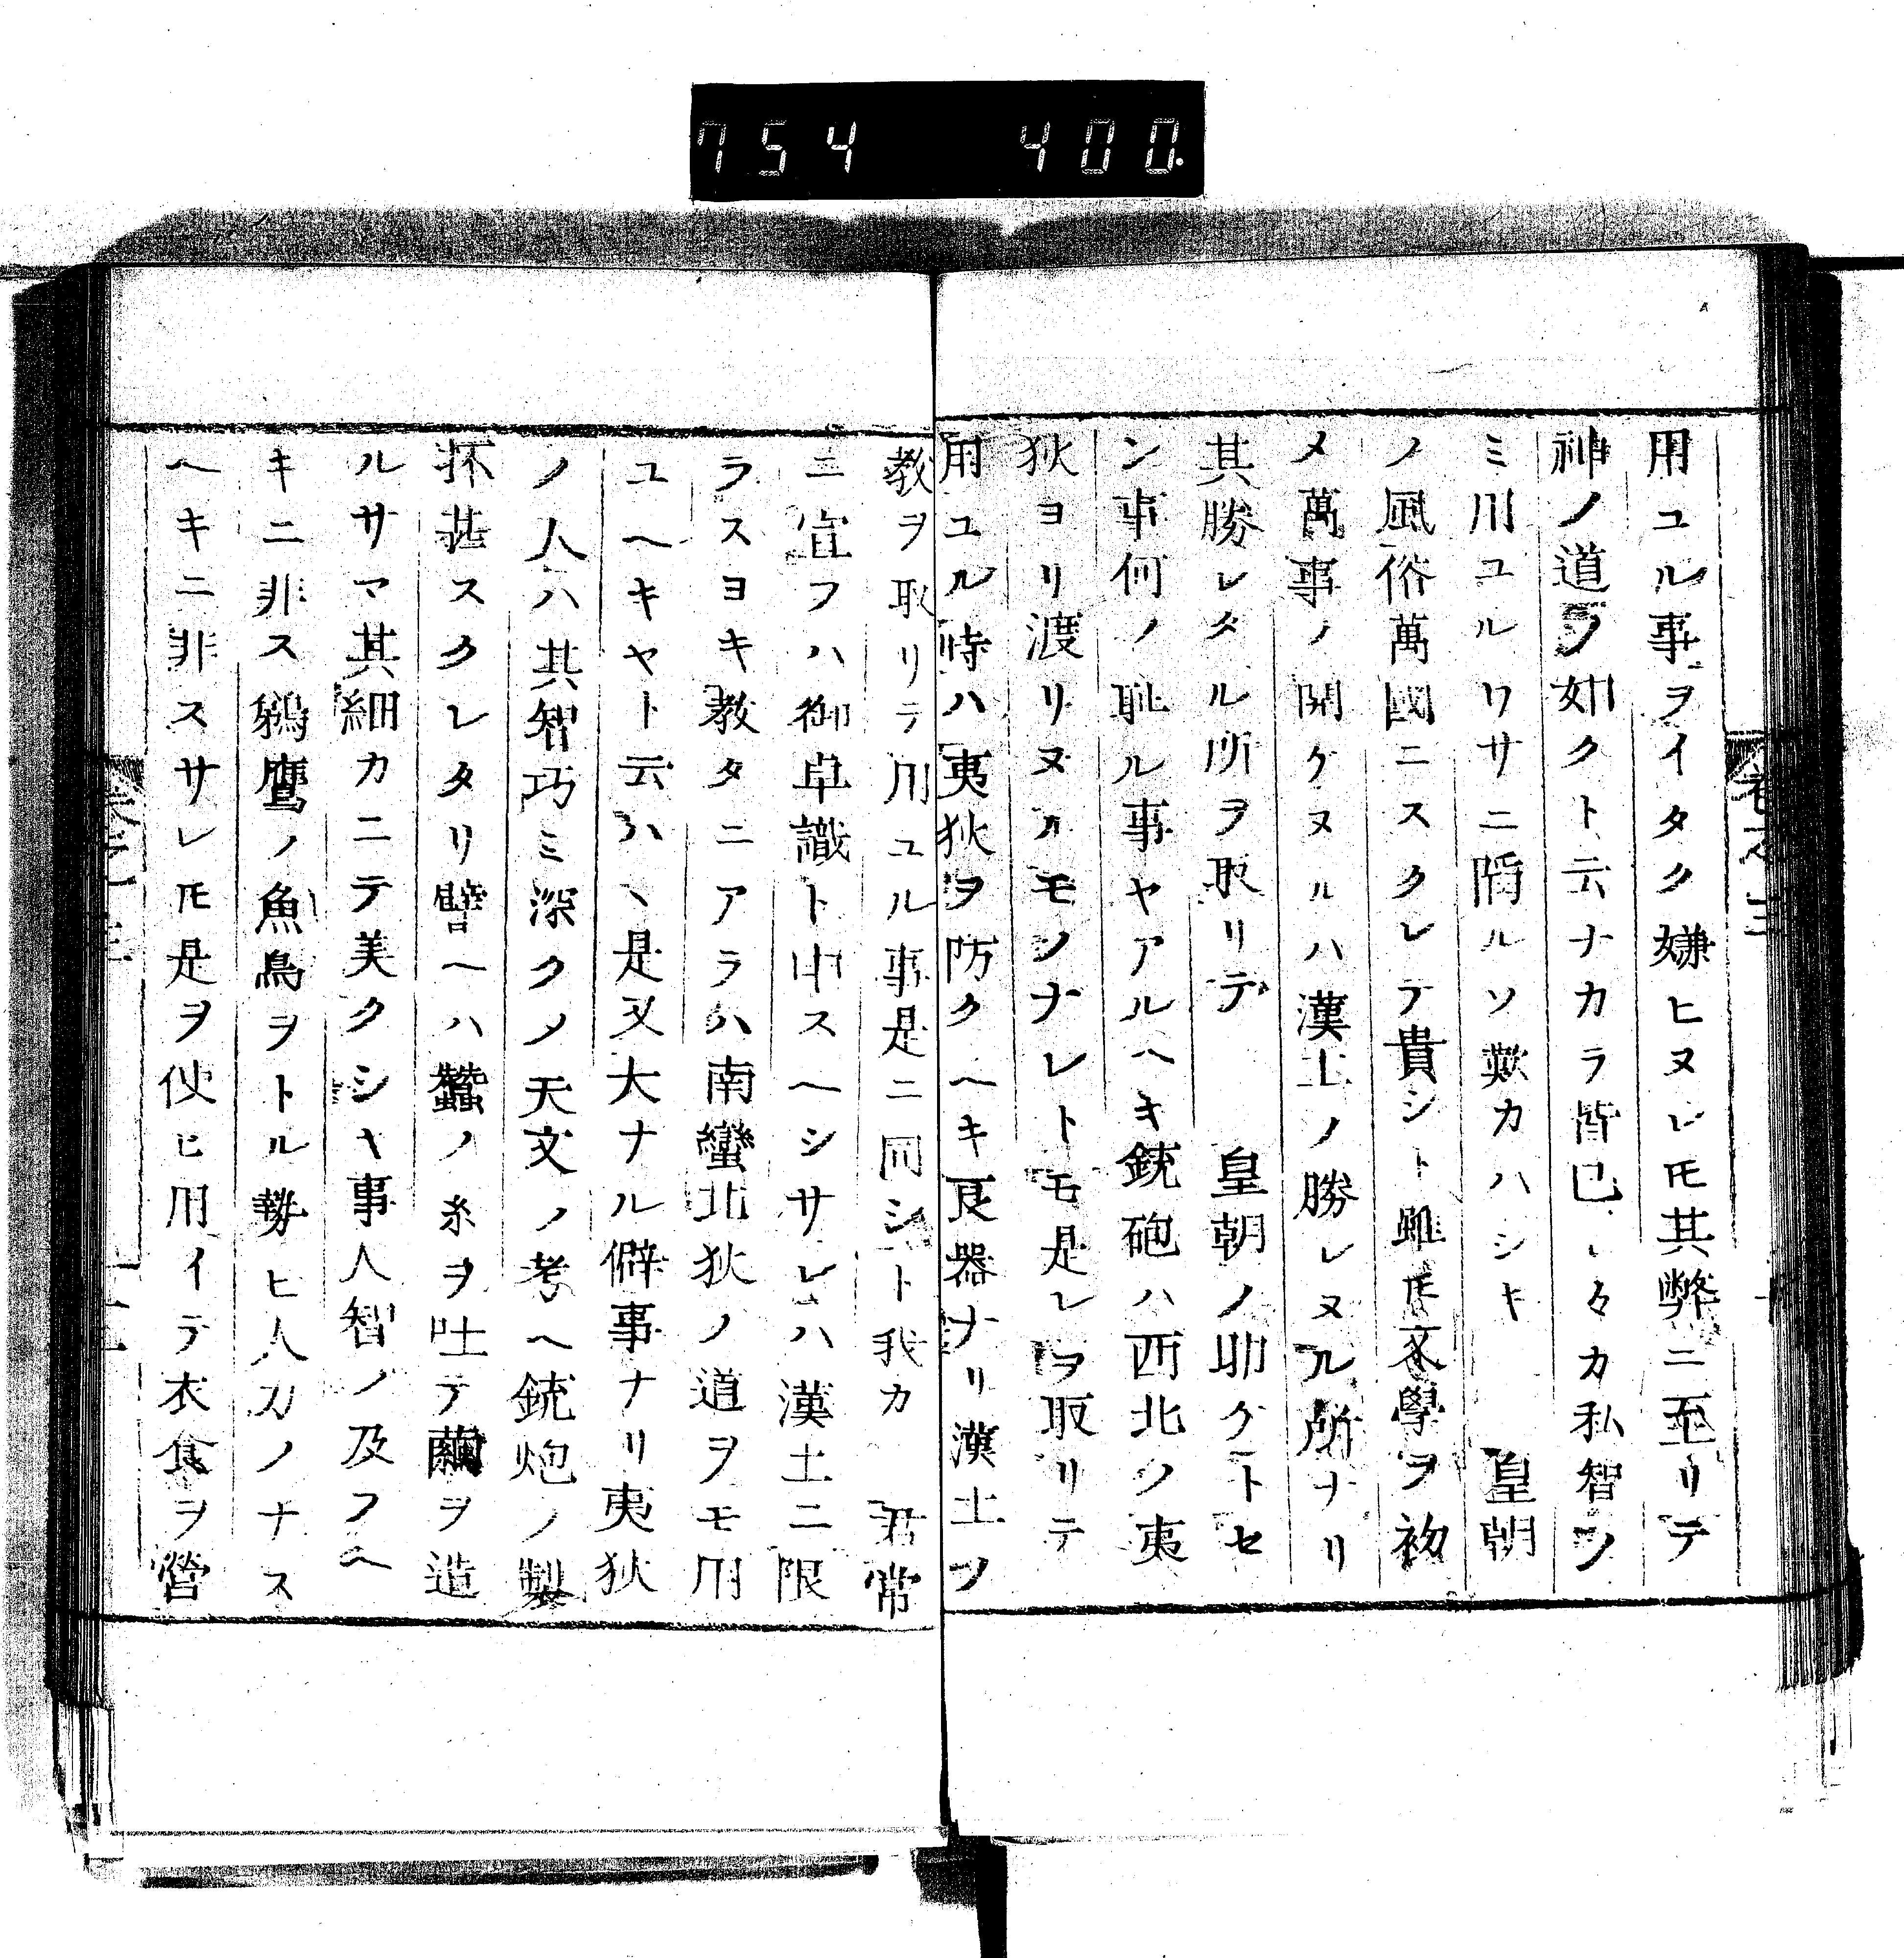 754 400.
用ユル事ヲイタク嫌ヒヌレ𪜈其弊ニ至リテ
神ノ道ノ如クト云ナカラ皆己レ々カ私智ノ
ミ用ユルワサニ陥ルソ歎カハシキ 皇朝
ノ風俗萬國ニスクレテ貴シト雖𪜈文學ヲ初
メ萬事ノ開ケヌルハ漢土ノ勝レヌル所ナリ
其勝レタル所ヲ取リテ 皇朝ノ助ケトセ
ン事何ノ恥ル事ヤアルヘキ銃砲ハ西北ノ夷
狄ヨリ渡リヌルモノナレトモ是レヲ取リテ
用ユル時ハ夷狄ヲ防クヘキ良器ナリ漢土ノ
教ヲ取リテ用ユル事是ニ同シト我カ 君常
ニ宣フハ御卓識ト申スヘシサレハ漢土ニ限
ラスヨキ教タニアラハ南蠻北狄ノ道ヲモ用
ユヘキヤト云ハヽ是又大ナル僻事ナリ夷狄
ノ人ハ其智巧ミ深クノ天文ノ考ヘ銃炮ノ製
抔甚スクレタリ譬ヘハ蠶ノ糸ヲ吐テ繭ヲ造
ルサマ其細カニテ美クシキ事人智ノ及フヘ
キニ非ス鵜鷹ノ魚鳥ヲトル勢ヒ人力ノナス
ヘキニ非スサレ𪜈是ヲ使ヒ用イテ衣食ヲ營